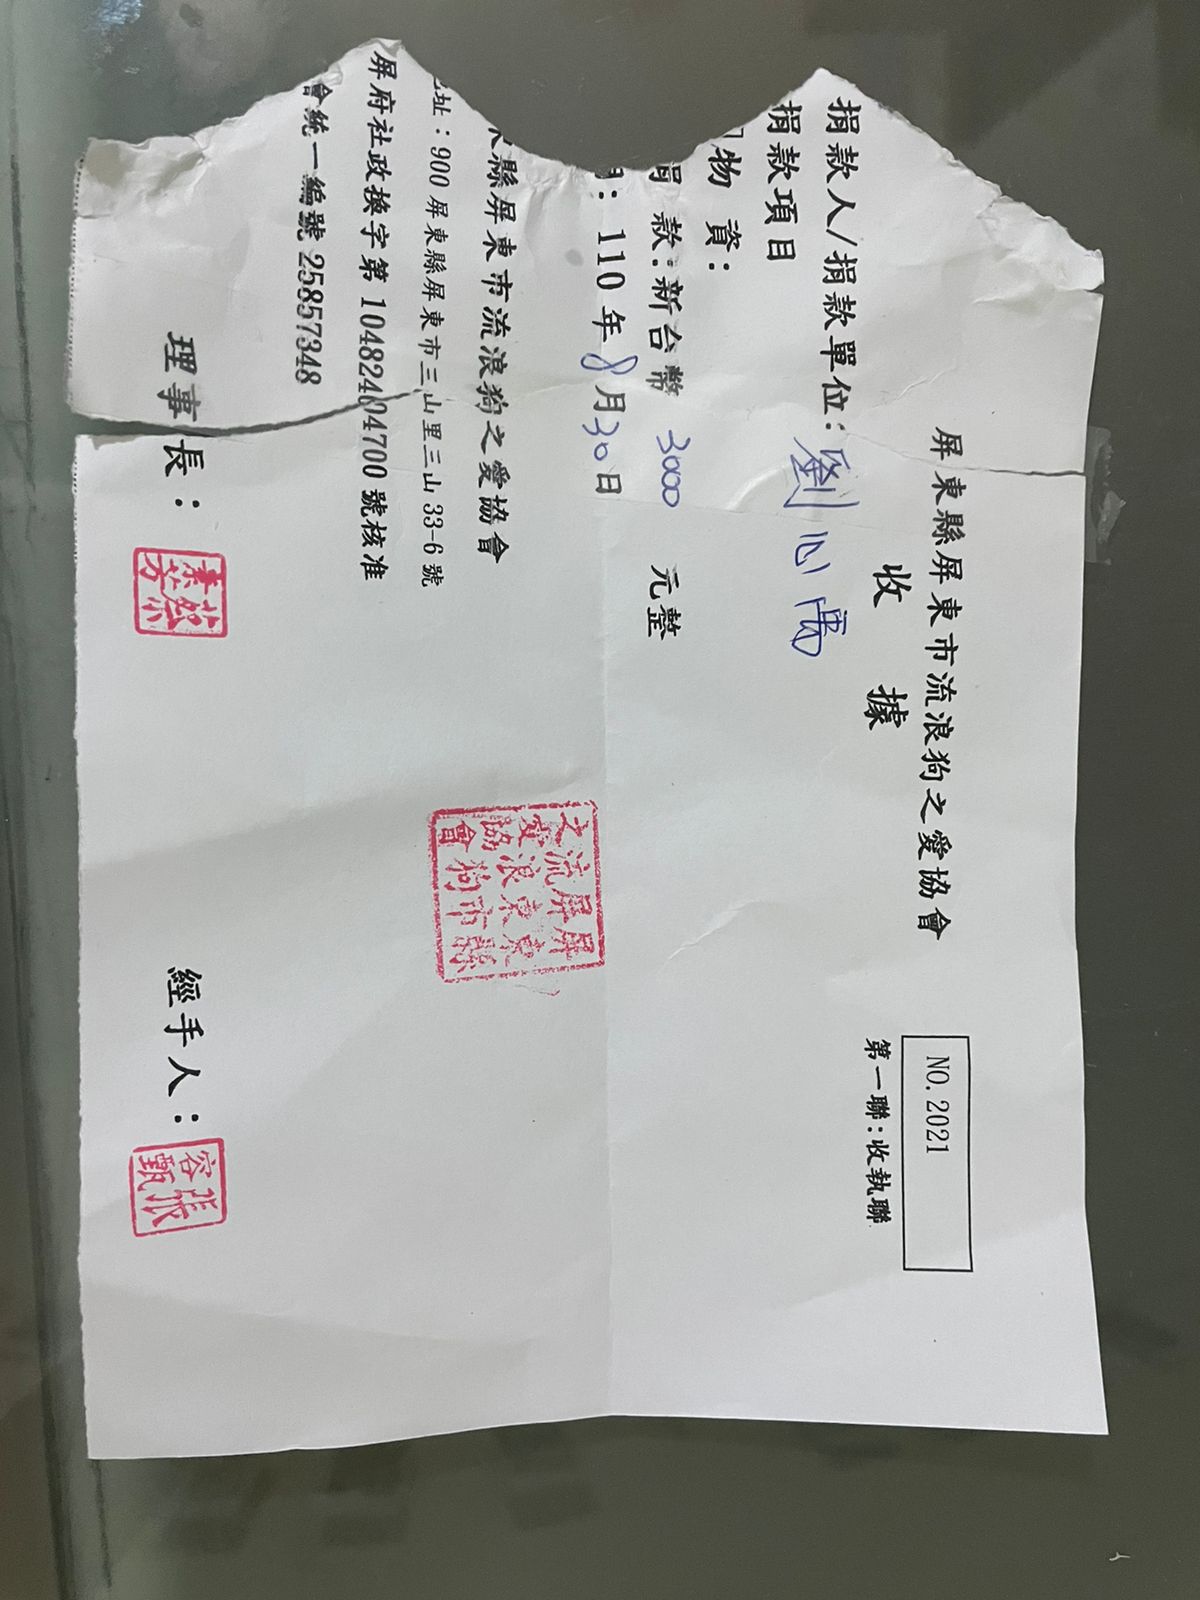 屏東縣屏東市流浪狗之愛協會
收 據
NO. 2021
第一聯:收執聯
捐款人/捐款單位:劉心
捐款項目
物 資:
款:新台幣 3000 元整
: 110 年 8 月 30 日
縣屏東市流浪狗之愛協會
址:900 屏東縣屏東市三山里三山 33-6 號
屏府社政換字第 10482404700 號核准
會統一編號 25857348
理事長:
經手人:
張容甄
屏東縣屏東市流浪狗之愛協會